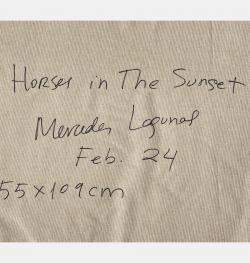 Horses in The Sunset
Mercedes Lagunas
Feb. 24
55x109cm